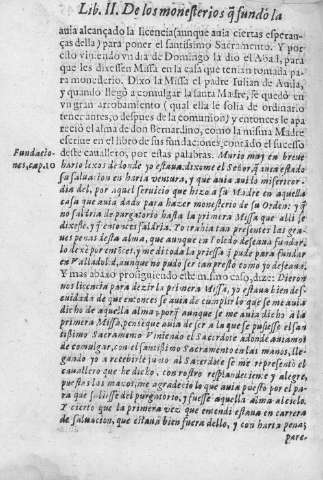 Lib. II. De los monesterios q̃ fundò la
auia alcançado la licencia (aunque auia ciertas esperan-
ças della) para poner el santissimo Sacramento. Y por
esto viniendo vn dia de Domingo la dio el Abad, para
que les dixessen Missa en la casa que tenian tomada pa-
ra monesterio. Dixo la Missa el padre Iulian de Auila,
y quando llegò a comulgar la santa Madre, se quedò en
vn gran arrobamiento (qual ella le solia de ordinario
tener antes, o despues de la comunion) y entonces le apa-
recio el alma de don Bernardino, como la misma Madre
escriue en el libro de sus fundaciones, contado el sucesso
deste cauallero, por estas palabras. Murio muy en breue
Fundacio-
nes, cap. 10
harto lexos de donde yo estaua, dixome el Señor, q̃ auia estado
su saluacion en harta ventura, y que auia auido misericor-
dia del, por aquel seruicio que hizo a su Madre en aquella
casa que auia dado para hazer monesterio de su Orden: y q̃
no saldria de purgatorio hasta la primera Missa que alli se
dixesse, y q̃ entonces saldria. Yo traîa tan presentes las gra-
ues penas desta alma, que aunque en Toledo desseaua fundar,
lo dexè por entonces, y me di toda la priessa q̃ pude para fundar
en Valladolid, aunque no pudo ser tan presto como yo desseaua.
Y mas abaxo prosiguiendo este mismo caso, dize: Dieron
nos licencia para dezir la primera Missa, yo estaua bien des-
cuidada de que entonces se auia de cumplir lo que se me auia
dicho de aquella alma, porq̃ aunque se me auia dicho a la
primera Missa, pense que auia de ser a la que se pusiesse el san
tissimo Sacramento. Viniendo el Sacerdote adonde auiamos
de comulgar, con el santissimo Sacramento en las manos, lle-
gando yo a recebirle, junto al Sacerdote se me representò el
cauallero que he dicho, con rostro resplandeciente y alegre,
puestas las manos, me agradecio lo que auia puesto por el pa-
ra que saliesse del purgatorio, y fuesse aquella alma al cielo.
Y cierto que la primera vez que entendi estaua en carrera
de saluacion, que estaua bien fuera dello, y con harta pena;
pare-